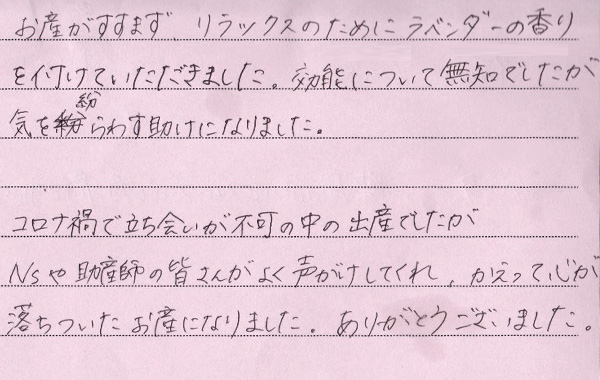 お産がすすまず、リラックスのためにラベンダーの香り
を付けていただきました。効能について無知でしたが
紛
気を紛らわす助けになりました。
コロナ禍で立ち会いが不可の中の出産でしたが
Nsや助産師の皆さんがよく声がけしてくれ、かえって心が
落ちついたお産になりました。ありがとうございました。